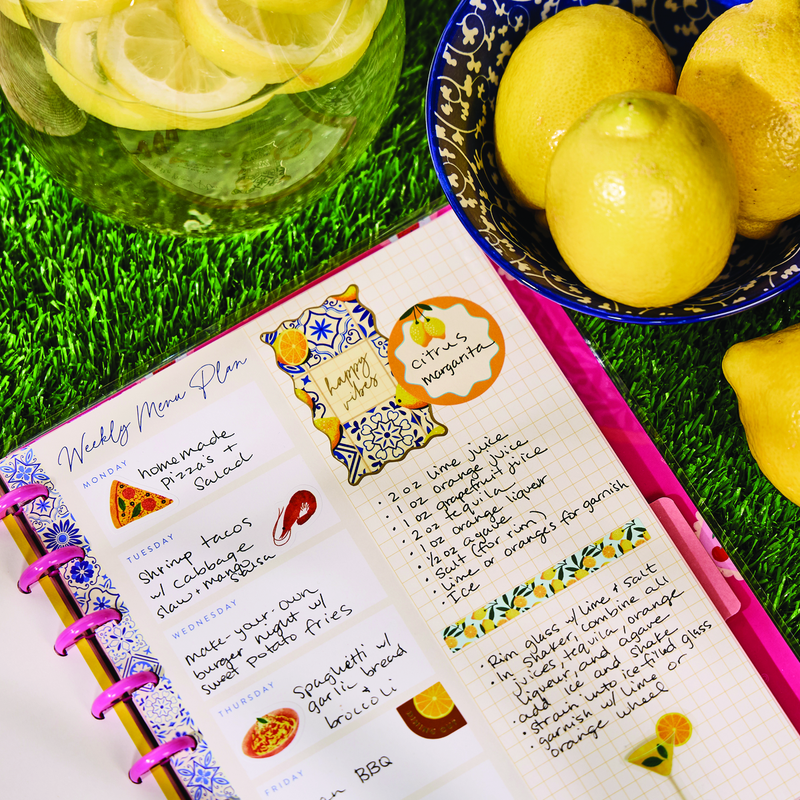 Weekly Menu Plan
MONDAY
homemade
pizza's +
salad
TUESDAY
shrimp tacos
w/ cabbage
slaw + mango
salsa
WEDNESDAY
make-your-own
burger night w/
sweet potato fries
THURSDAY
spaghetti w/
garlic bread
+
broccoli
FRIDAY
BBQ
happy
vibes
citrus
margarita
• 2 oz lime juice
• 1 oz orange juice
• 1 oz grapefruit juice
• 2 oz tequila
• 1 oz orange liquer
• 1/2 oz agave
• Salt (for rim)
• Lime or oranges for garnish
• Ice
• Rim glass w/ lime + salt
• In shaker, combine all
juices, tequila, orange
liqueur, and agave
• add ice and shake
• strain into ice-filled glass
• garnish w/ lime or
orange wheel